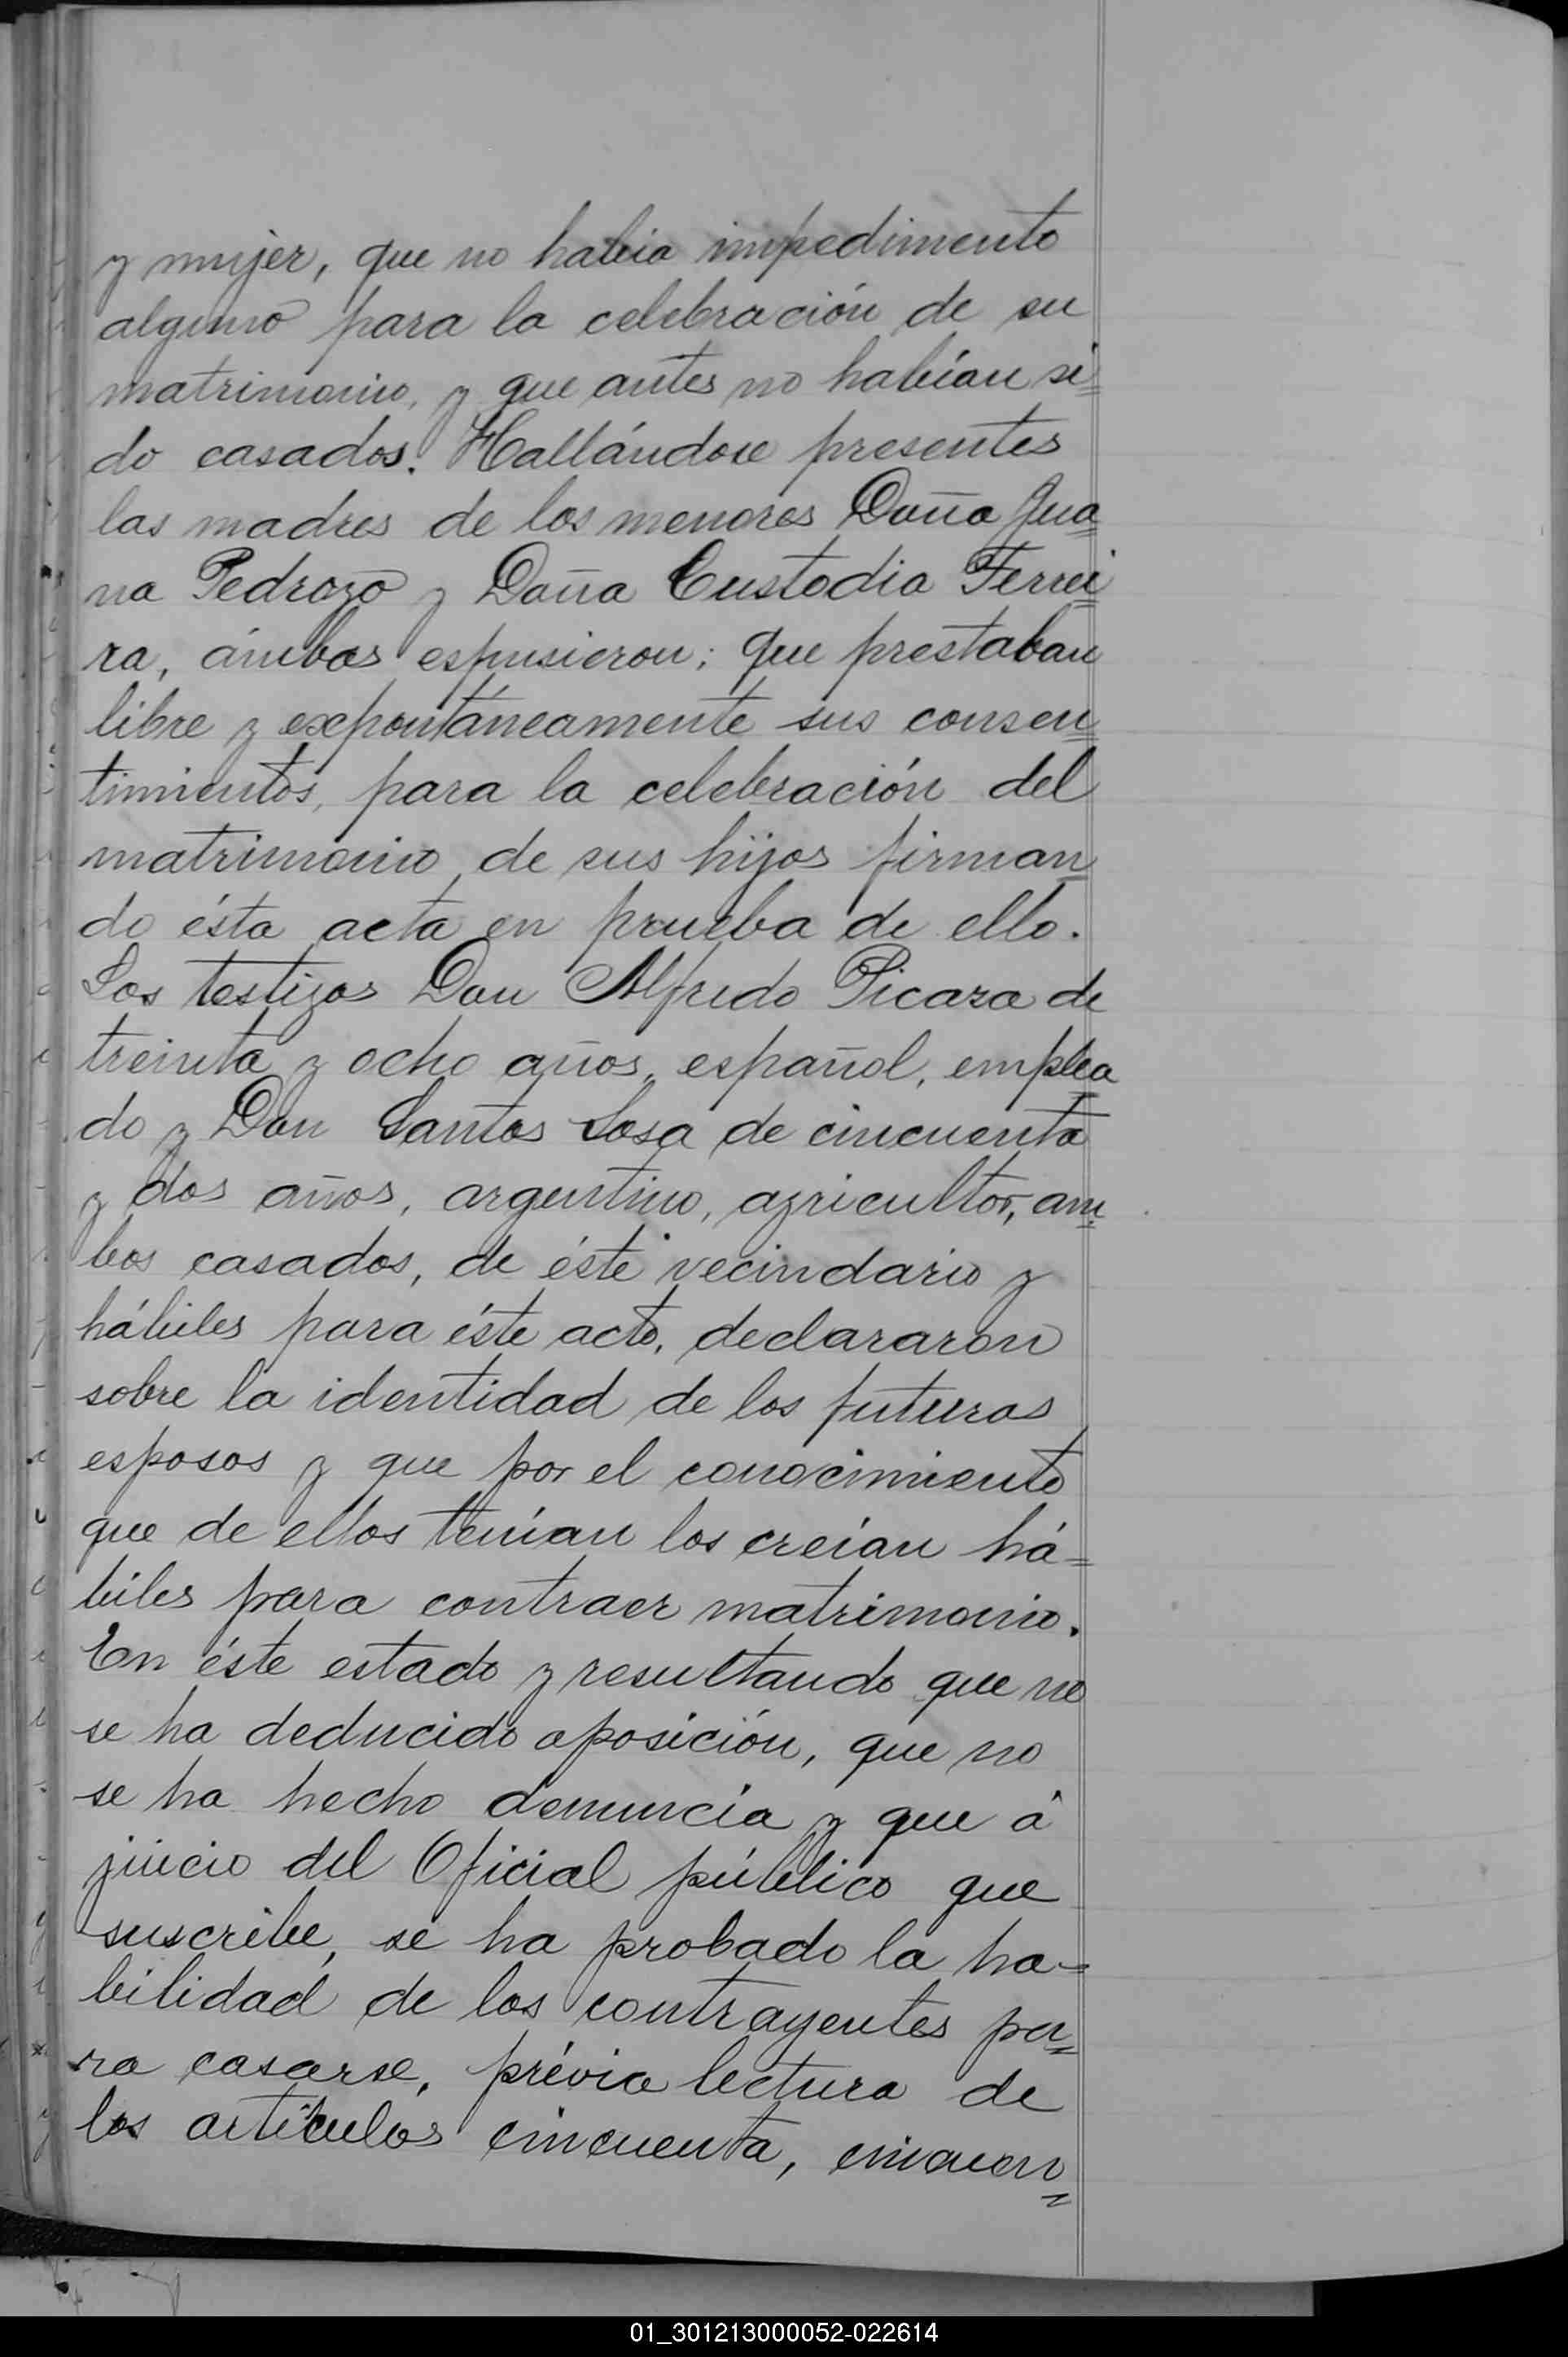 y mujer, que no habia impedimento
alguno para la celebración de su
matrimonio, y que antes no habían si=
do casados. Hallándose presentes
las madres de los menores Doña Jua=
na Pedrozo y Doña Custodia Ferrei=
ra, ámbas espusieron; que prestaban
libre y expontáneamente sus consen=
timientos, para la celebración del
matrimonio de sus hijos firman=
do ésta acta en prueba de ello.
Los testigos Don Alfredo Picaza de
treinta y ocho años, español, emplea=
do y Don Santos Sosa de cincuenta
y dos años, argentino, agricultor, am=
bos casados, de éste vecindario y
hábiles para éste acto, declararon
sobre la identidad de los futuros
esposos y que por el conocimiento
que de ellos tenían los creían há=
biles para contraer matrimonio.
En éste estado y resultando que no
se ha deducido oposición, que no
se ha hecho denuncia y que á
juicio del Oficial público que
suscribe, se ha probado la ha=
bilidad de los contrayentes pa=
ra casarse, prévia lectura de
los artículos cincuenta, cincuen=
01_301213000052-022614